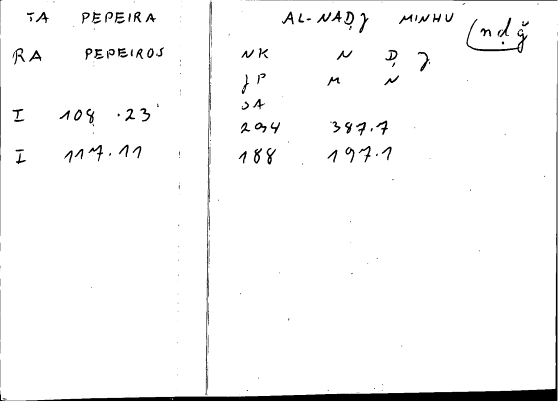 TA PEPEIRA AL-NAḌJ MINHU (nḍǧ
RA PEPEIROS NK N Ḍ J
JP M N
OA
I 108.23 294 387.7
I 117.11 188 197.1